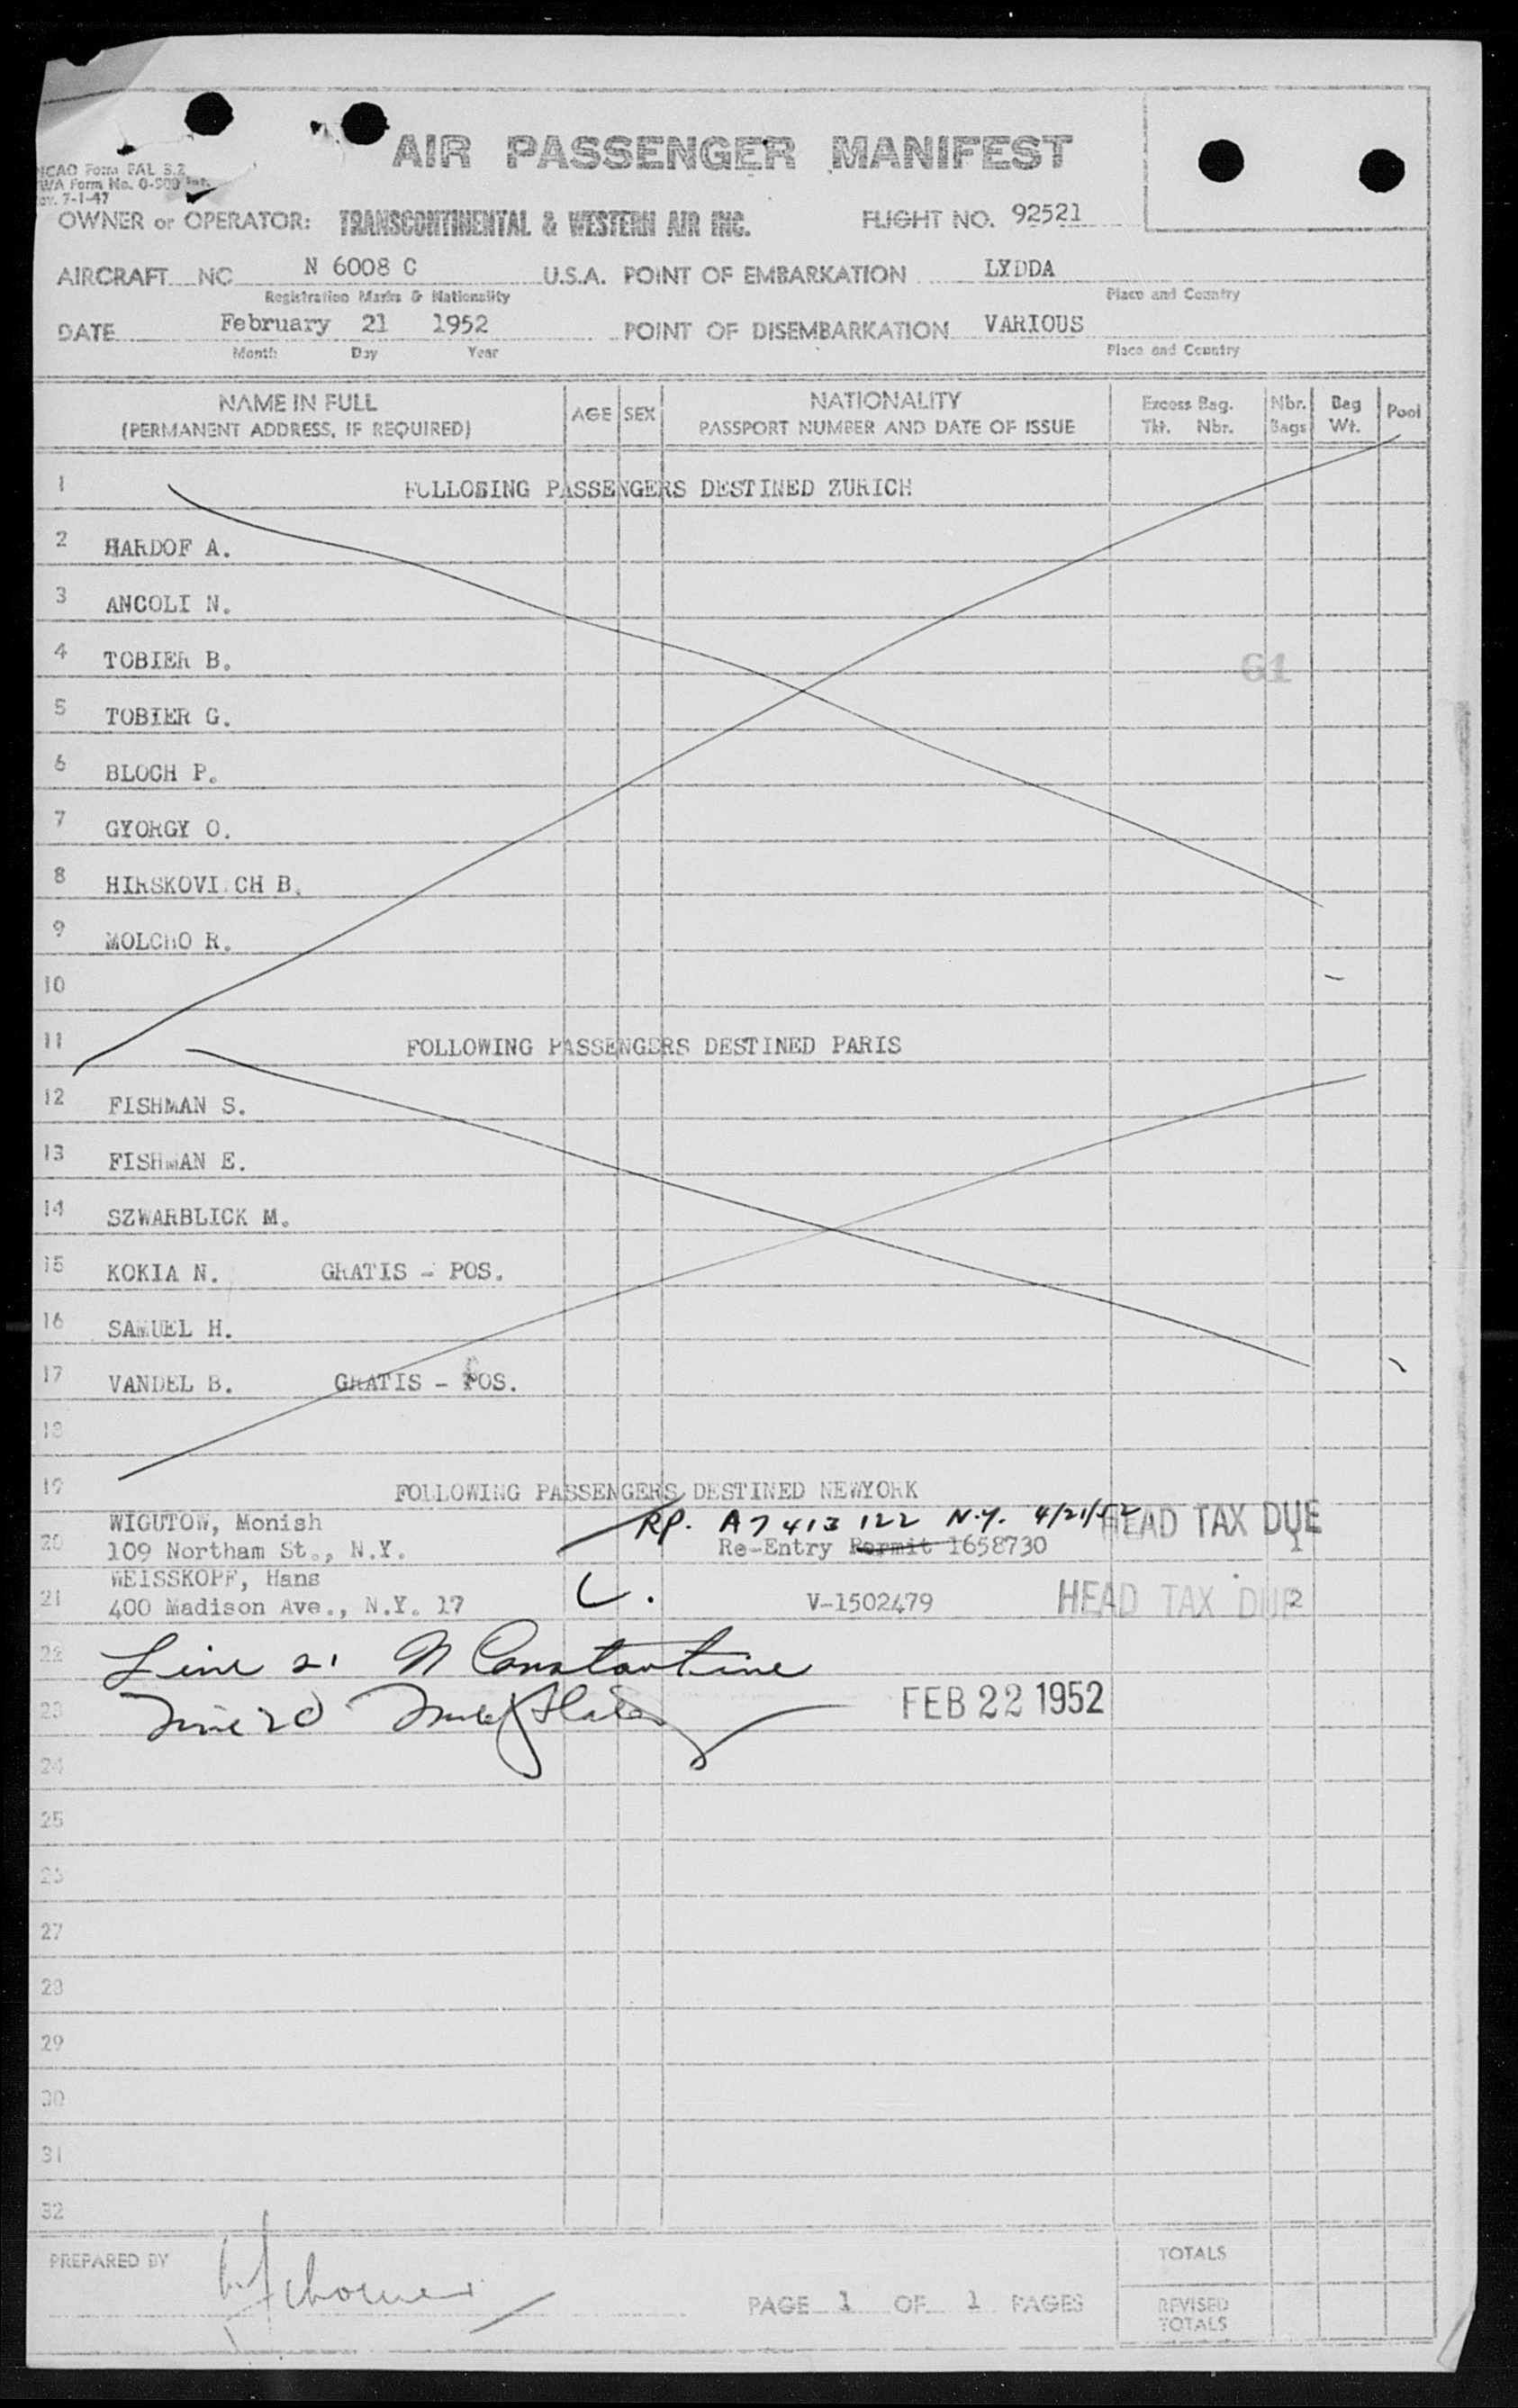 AIR PASSENGER MANIFEST
ICAO Form FAL S.2
TWA Form No. 0-500 Int.
Rev. 7-1-47
OWNER or OPERATOR: TRANSCONTINENTAL & WESTERN AIR INC. FLIGHT NO. 92521
AIRCRAFT NC N 6008 C U.S.A. POINT OF EMBARKATION LYDDA
Registration Marks & Nationality Place and Country
DATE February 21 1952 POINT OF DISEMBARKATION VARIOUS
Month Day Year Place and Country
NAME IN FULL AGE SEX NATIONALITY Excess Bag. Nbr. Bag Pool
(PERMANENT ADDRESS, IF REQUIRED) PASSPORT NUMBER AND DATE OF ISSUE Tkt. Nbr. Bags Wt.
1 FOLLOSING PASSENGERS DESTINED ZURICH
2 HARDOF A.
3 ANCOLI N.
4 TOBIER B. 61
5 TOBIER G.
6 BLOCH P.
7 GYORGY O.
8 HIRSKOVI CH B.
9 MOLCHO R.
10
11 FOLLOWING PASSENGERS DESTINED PARIS
12 FISHMAN S.
13 FISHMAN E.
14 SZWARBLICK M.
15 KOKIA N. GRATIS - POS.
16 SAMUEL H.
17 VANDEL B. GRATIS - POS.
18
19 FOLLOWING PASSENGERS DESTINED NEWYORK
WIGUTOW, Monish RP. A7 413 122 N.Y. 4/21/52 HEAD TAX DUE
20 109 Northam St., N.Y. Re-Entry Permit 1658730 1
WEISSKOPF, Hans
21 400 Madison Ave., N.Y. 17 C. V-1502479 HEAD TAX DUE 2
22 Line 21 N Constantine
23 Line 20 FEB 22 1952
24
25
26
27
28
29
30
31
32
PREPARED BY TOTALS
PAGE 1 OF 1 PAGES REVISED
TOTALS